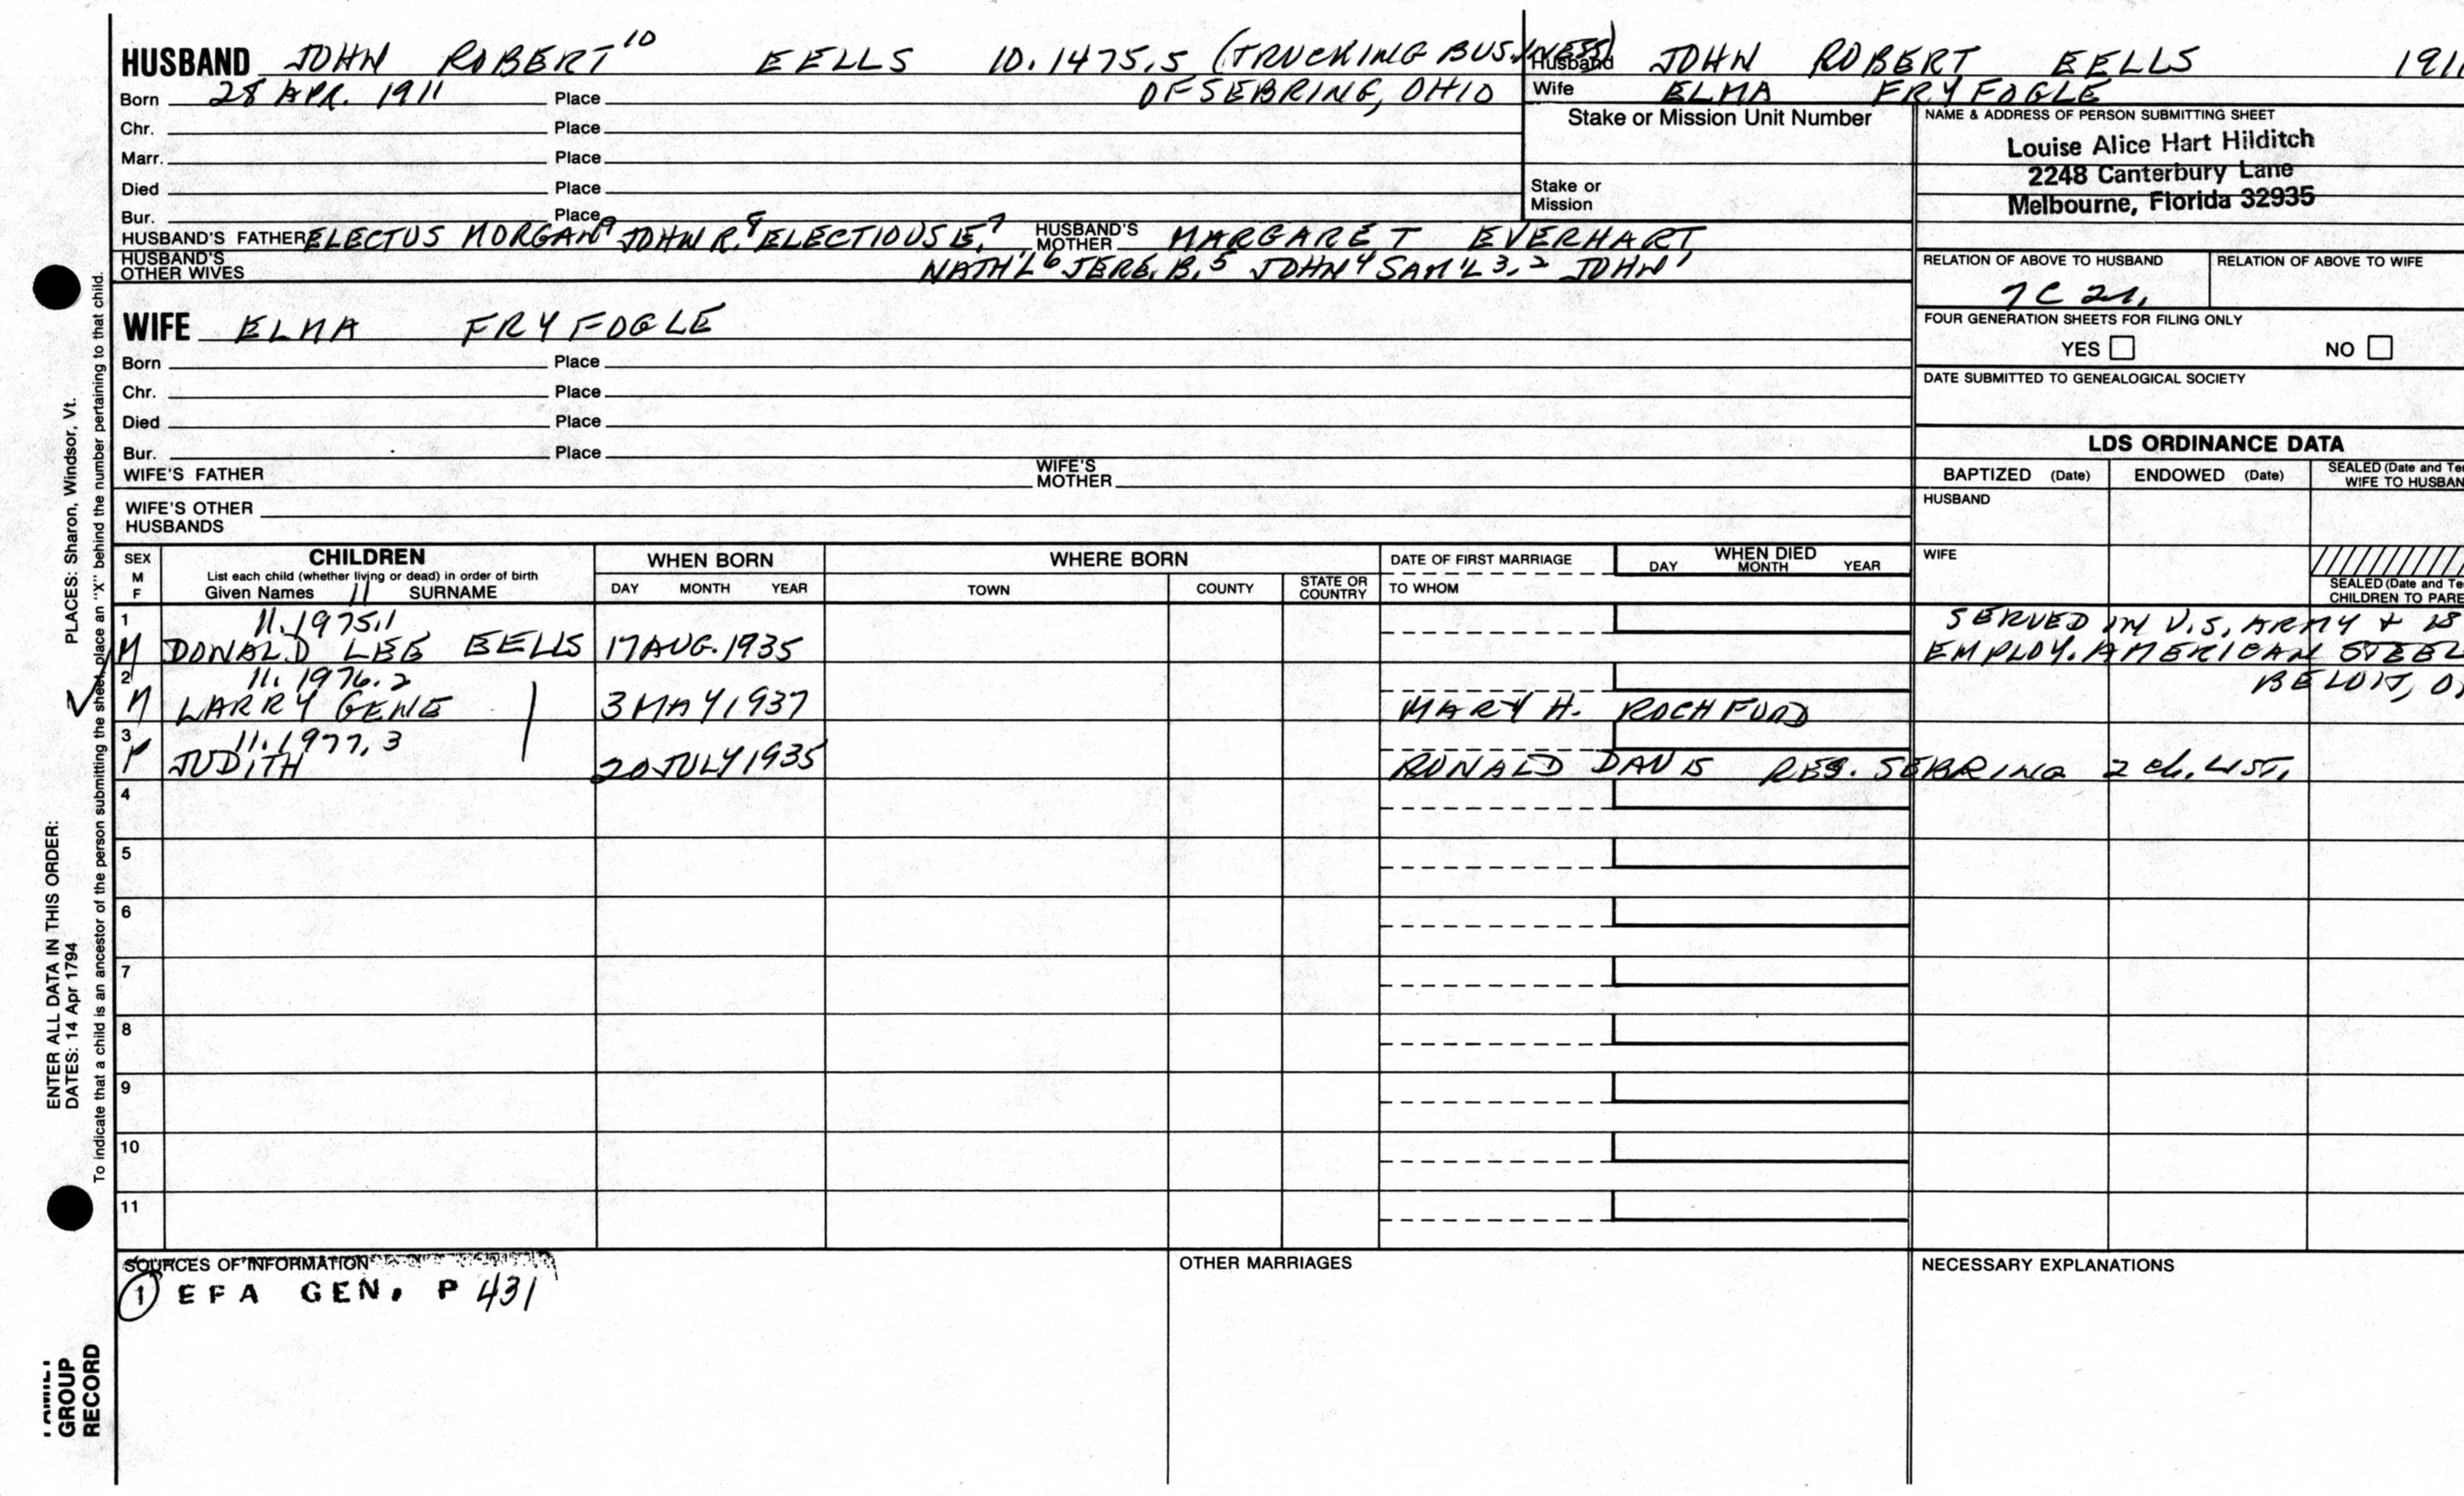 HUSBAND JOHN ROBERT 10 EELLS 10.1475.5 (TRUCKING BUSINESS)
Born 28 APR. 1911 Place OF SEBRING, OHIO
Chr. Place
Marr. Place
Died Place
Bur. Place
HUSBAND'S FATHER ELECTUS MORGAN 9 JOHN R. 8 ELECTIOUS E. 7 HUSBAND'S MOTHER MARGARET EVERHART
HUSBAND'S OTHER WIVES NATH'L 6 JERE. B. 5 JOHN 4 SAM'L 3, 2 JOHN 1
Husband JOHN ROBERT EELLS 1911
Wife ELMA FRYFOGLE
Stake or Mission Unit Number
Stake or
Mission
NAME & ADDRESS OF PERSON SUBMITTING SHEET
Louise Alice Hart Hilditch
2248 Canterbury Lane
Melbourne, Florida 32935
RELATION OF ABOVE TO HUSBAND RELATION OF ABOVE TO WIFE
7C 2r.
FOUR GENERATION SHEETS FOR FILING ONLY
YES NO
DATE SUBMITTED TO GENEALOGICAL SOCIETY
WIFE ELMA FRYFOGLE
Born Place
Chr. Place
Died Place
Bur. Place
WIFE'S FATHER WIFE'S MOTHER
WIFE'S OTHER
HUSBANDS
LDS ORDINANCE DATA
BAPTIZED (Date) ENDOWED (Date) SEALED (Date and Te
WIFE TO HUSBAN
HUSBAND
WIFE
SEALED (Date and Te
CHILDREN TO PARE
SEX M F CHILDREN WHEN BORN WHERE BORN DATE OF FIRST MARRIAGE WHEN DIED
List each child (whether living or dead) in order of birth
Given Names 11 SURNAME DAY MONTH YEAR TOWN COUNTY STATE OR COUNTRY TO WHOM DAY MONTH YEAR
1 11.1975.1 SERVED IN U.S. ARMY & IS
M DONALD LEE EELLS 17 AUG. 1935 EMPLOY. AMERICAN STEEL
2 11.1976.2 BELOIT, O
M LARRY GENE 3 MAY 1937 MARY H. ROCHFORD
3 11.1977.3
F JUDITH 20 JULY 1935 RONALD DAVIS RES. SEBRING 2 ch. LIST.
4
5
6
7
8
9
10
11
SOURCES OF INFORMATION
1 EFA GEN. P 431
OTHER MARRIAGES
NECESSARY EXPLANATIONS
PLACES: Sharon, Windsor, Vt.
ENTER ALL DATA IN THIS ORDER:
DATES: 14 Apr 1794
To indicate that a child is an ancestor of the person submitting the sheet, place an "X" behind the number pertaining to that child.
FAMILY
GROUP
RECORD